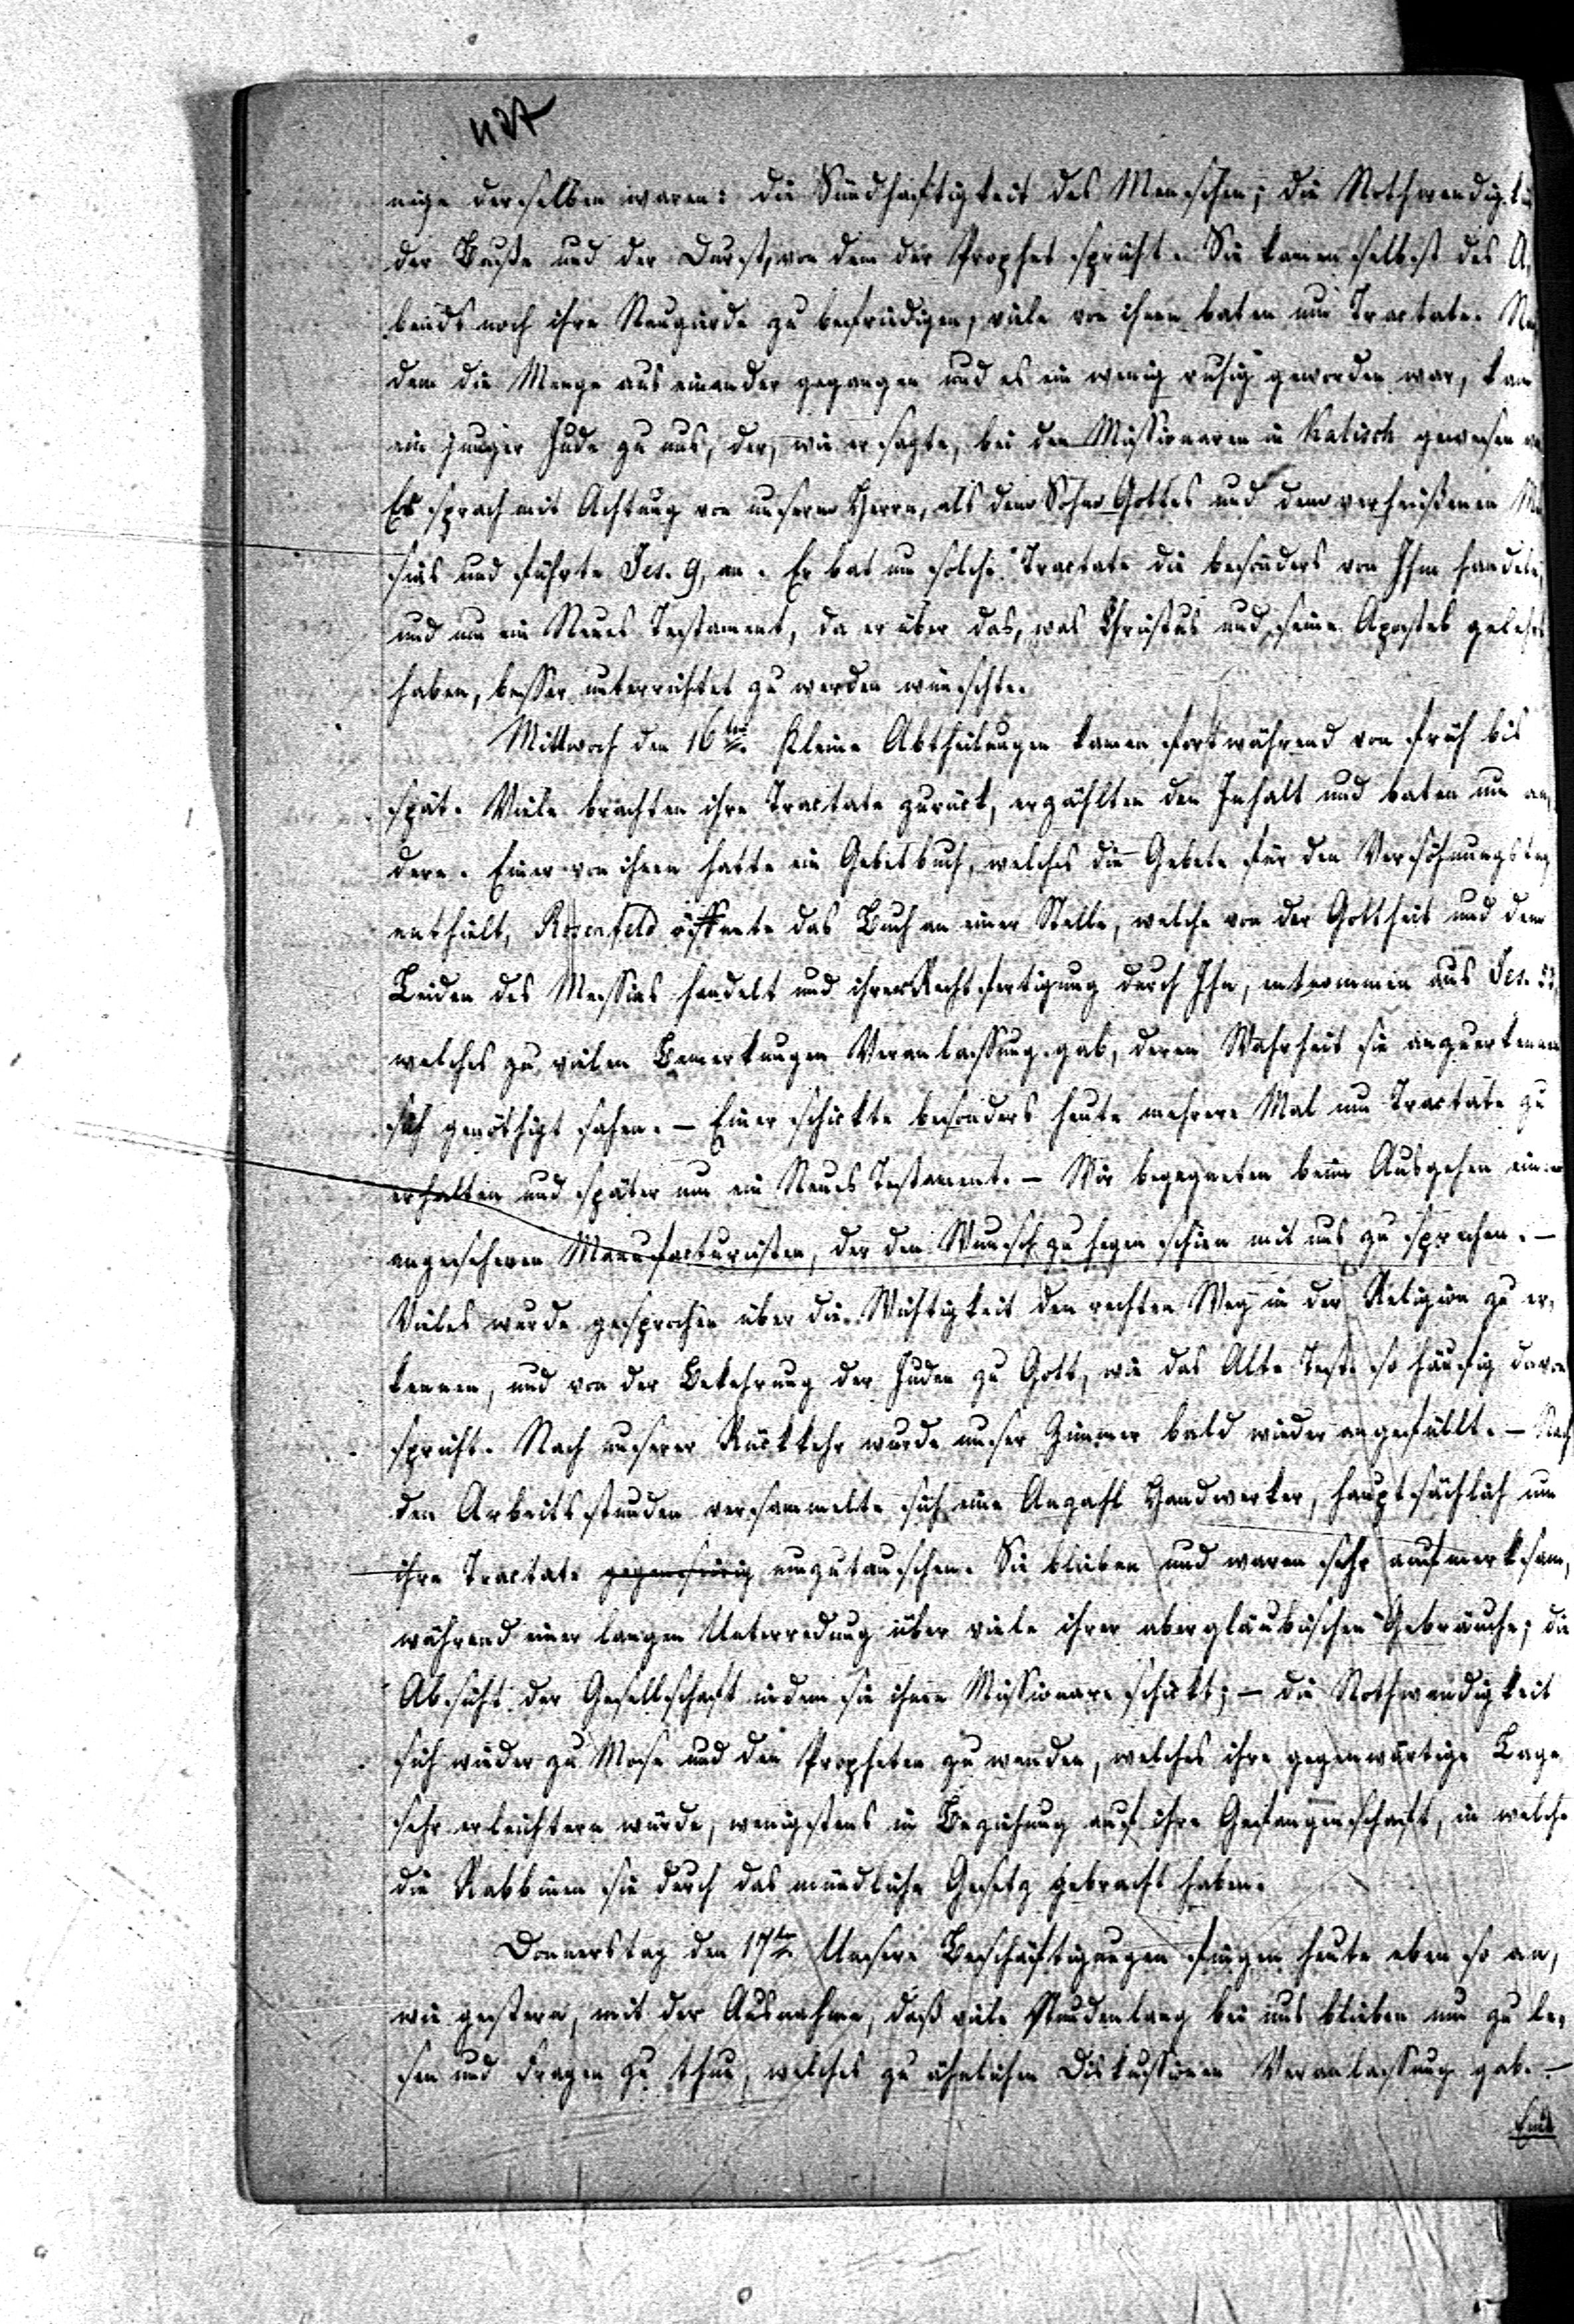 nige derselben waren: die Sündhaftigkeit des Menschen; die Nothwendigkei
der Buße und der Durst, von dem der Prophet spricht. Sie kamen selbst des A,
bends noch ihre Neugierde zu befriedigen, viele von ihnen baten um Tractate. Na
dem die Menge aus einander gegangen und es ein wenig ruhig geworden war, kam
ein junger Jude zu uns, der, wie er sagte, bei den Missionaren in Kalisch gewesen
Er sprach mit Achtung von unserm Herrn, als dem Sohne Gottes und dem verheißenen Me
sias und führte Jes. 9, an. Er bat um solche Tractate die besonders von Ihm handeln,
und um ein Neues Testament, da er über das, was Christus und seine Apostel gelehrt
haben, besser unterrichtet zu werden wünschte.
Mittwoch den 16ten Kleine Abtheilungen kamen fortwährend von früh bis
spät. Viele brachten ihre Tractate zurück, erzählten den Inhalt und baten um an,
dere. Einer von ihnen hatte ein Gebetbuch, welches die Gebete für den Versöhnungstag
enthielt, Rosenfeld öffnete das Buch an einer Stelle, welche von der Gottheit und dem
Leiden des Messias handelt und ihrer Rechtfertigung durch Ihn, entnommen aus Jes. 53,
welches zu vielen Bemerkungen Veranlassung gab, deren Wahrheit sie anzuerkennen
sich genöthigt sahen. – Einer schickte besonders heute mehrere Mal um Tractate zu
erhalten und später um ein Neues Testament. – Wir begegneten beim Ausgehen einem
angesehenen Manufacturisten, der den Wunsch zu hegen schien mit uns zu sprechen. –
Vieles wurde gesprochen über die Wichtigkeit den rechten Weg in der Religion zu er,
kennen, und von der Bekehrung der Juden zu Gott, wie das Alte Test. so häufig davon
spricht. Nach unserer Rückkehr wurde unser Zimmer bald wieder angefüllt. – Nach
den Arbeitsstunden versammelte sich eine Anzahl Handwerker, hauptsächlich um
ihre Tractate gegenseitig umzutauschen. Sie blieben und waren sehr aufmerksam,
während einer langen Unterredung über viele ihrer abergläubischen Gebräuche; die
Absicht der Gesellschaft indem sie ihnen Missionare schickt; – die Nothwendigkeit
sich wieder zu Mose und den Propheten zu wenden, welches ihre gegenwärtige Lage
sehr erleichtern würde, wenigstens in Beziehung auf ihre Gefangenschaft, in welche
die Rabbinen sie durch das mündliche Gesetz gebracht haben.
Donnerstag den 17ten Unsere Beschäftigungen fingen heute eben so an,
wie gestern, mit der Ausnahme, daß viele Stundenlang bei uns blieben um zu le,
sen und Fragen zu thun, welches zu ähnlichen Diskussionen Veranlassung gab. –